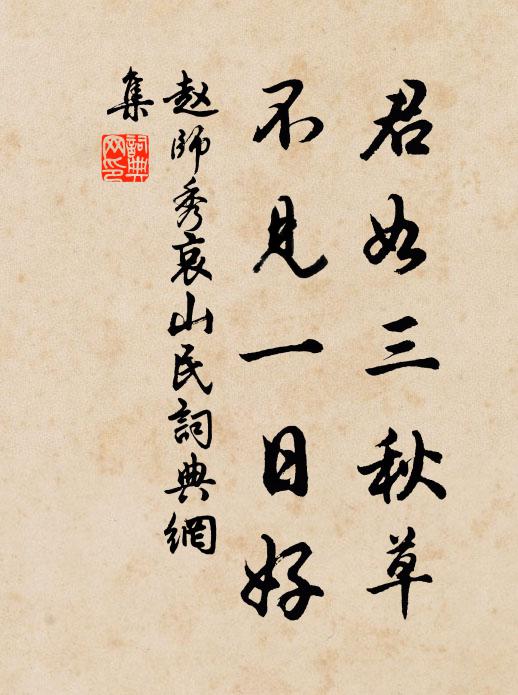 君如三秋草
不见一日好
赵師秀哀山民詞典網
集
詞典
网印